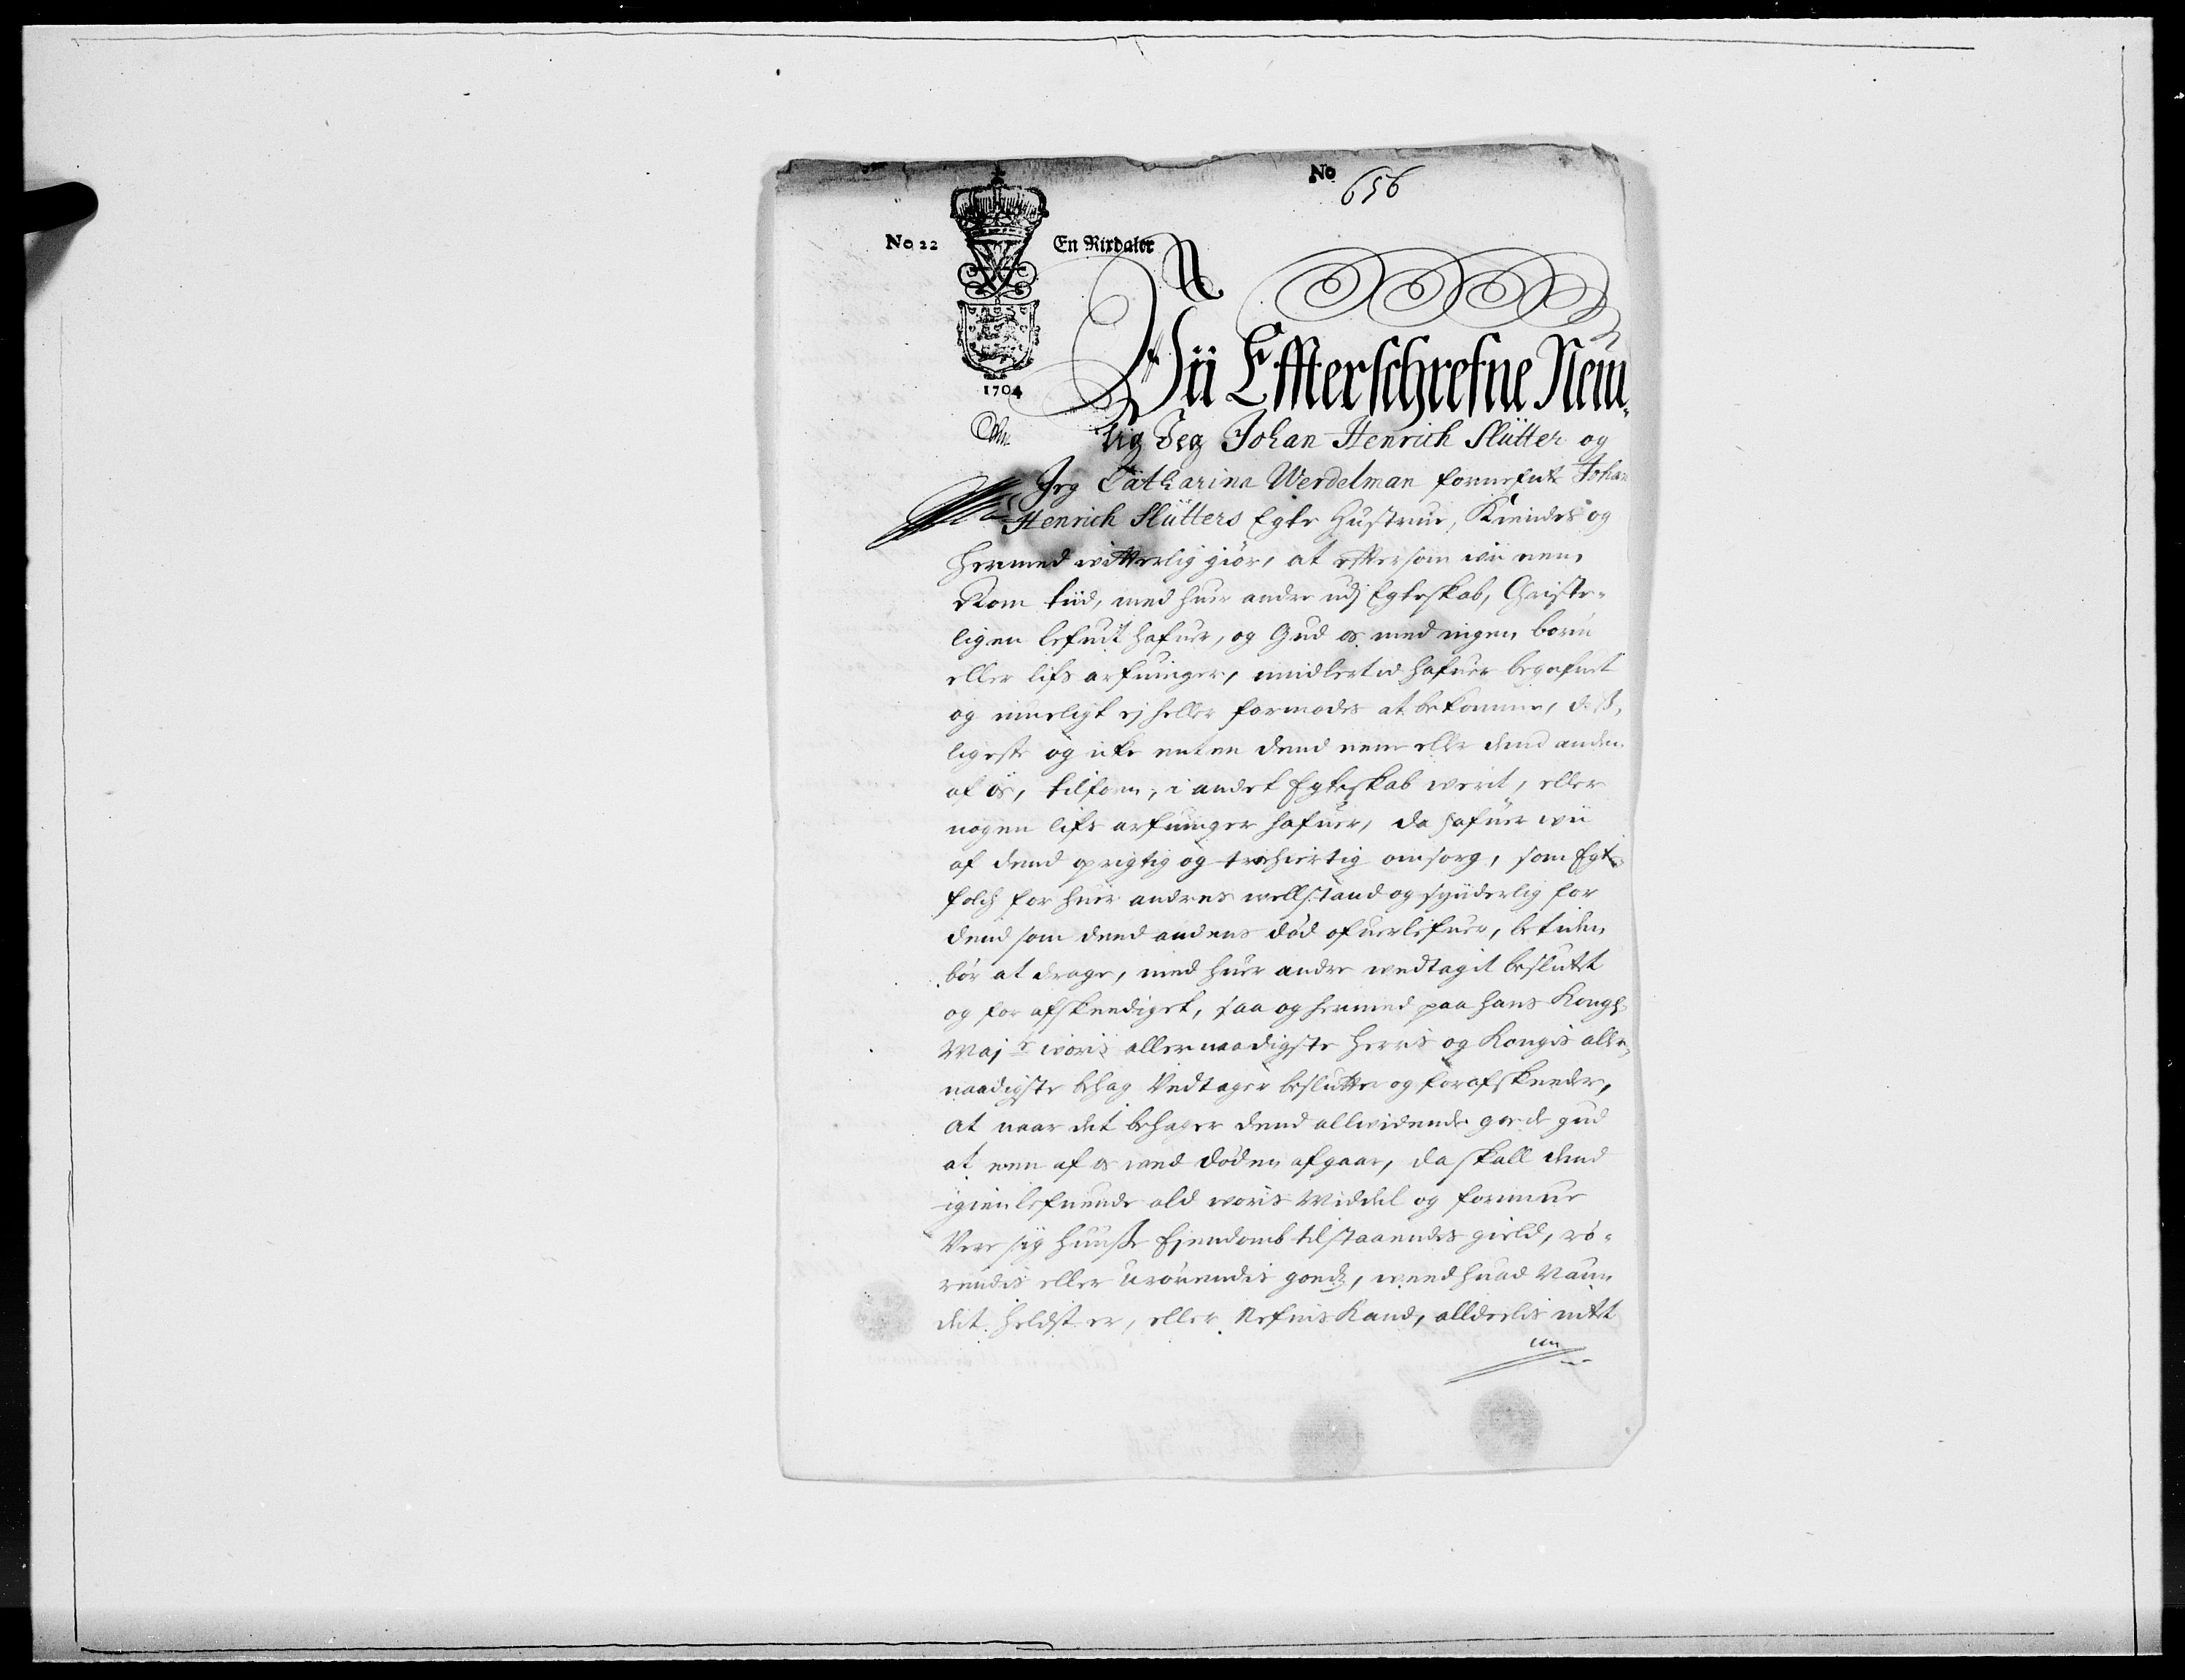 No
656
No 22
En Rixdaler
1704
Wii Effterschrefne Nem¬
lig Jeg Johan Henrich Slütter og
Jeg Catharina Werdelman fornefnte Johan
Henrich Slütters Egte Hustrue, Kiendes og
hermed witterlig giör, at effttersom wii nen¬
Rom tiid, med huer andre udj Egteskab, Christe¬
ligen lefuit hafuer, og Gud os med ingen börn
eller lifs arfuinger, midlertid hafuer begafuet
og mueligt ej heller formodes at bekomme, dess¬
ligeste og icke enten dend eene eller dend anden
af os, tilforn, i andet Egteskab werit, eller
nogen lifs arfuinger hafuer, da hafuer wii
af dend oprigtig og trohiertig omsorg, som Egte
folch for huer andres wellstand og synderlig for
dend som dend andens död ofuerlefuer, betiden
bör at drage, med huer andre wedtagit besluttet
og for afskeediget, saa og hermed paa hans Kongl:
Maj:ts woris allernaadigste Herris og Kongis aller¬
naadigste behag Vedtager beslutter og forafskeeder,
at naar det behager dend allvidende gode gud
at een af os ved döden afgaar, da skall dend
igienlefuende ald woris Middel og formue
Være sig huusse Ejendomb tilstaaendes gield, rö¬
rendis eller urörendis goedz, weed huad Naun
det heldst er, eller Nefnis Kand, alldeelis udtet
um